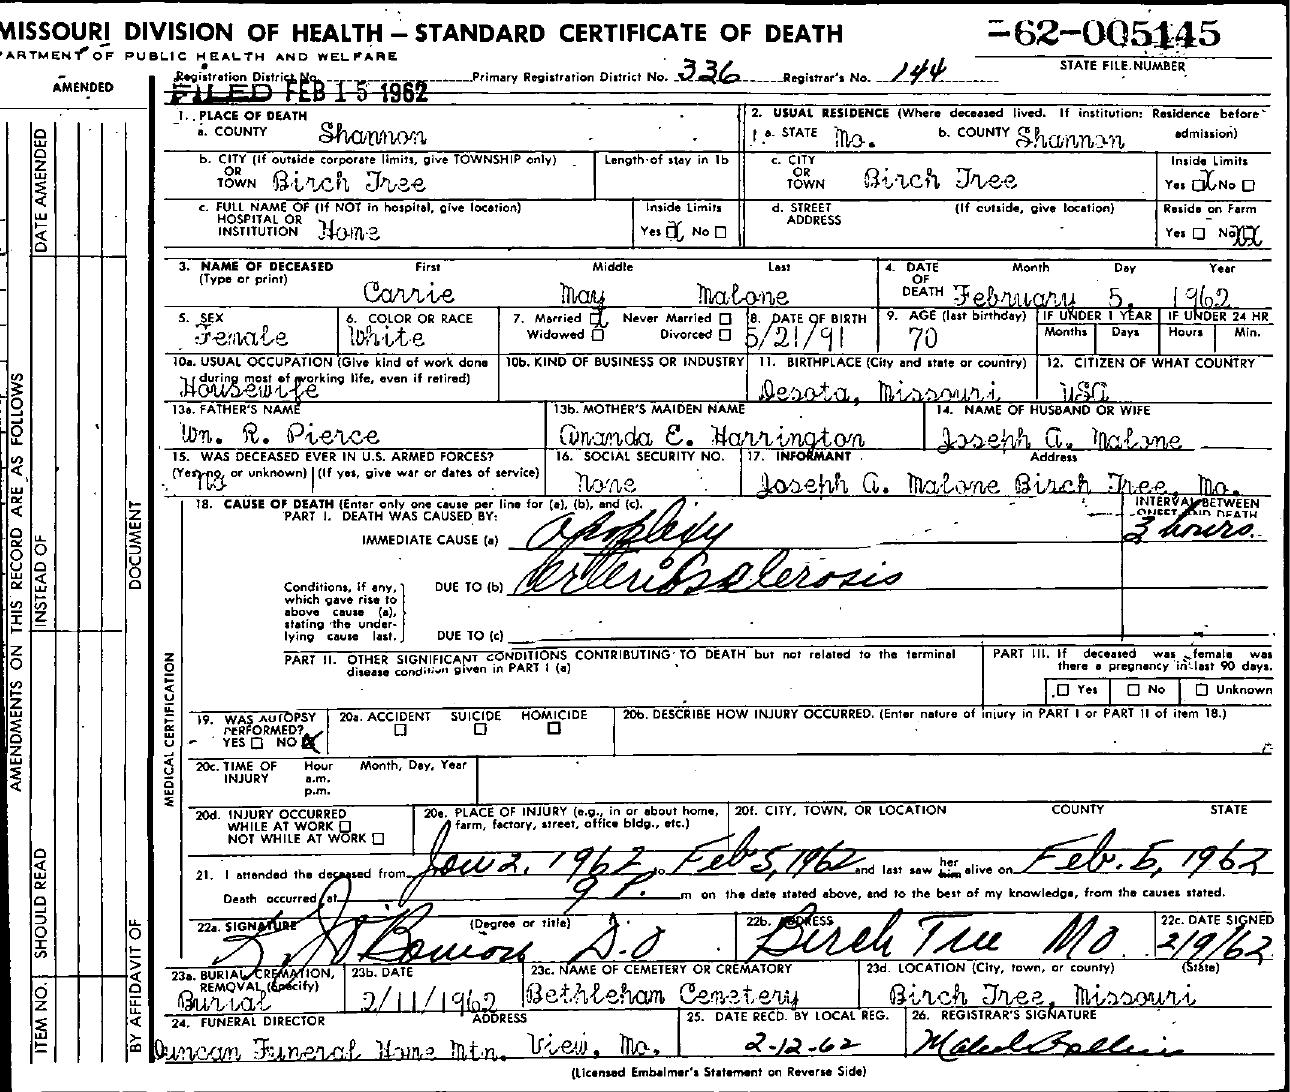 MISSOURI DIVISION OF HEALTH — STANDARD CERTIFICATE OF DEATH
-62-005145
PARTMENT OF PUBLIC HEALTH AND WELFARE
STATE FILE NUMBER
AMENDED
Registration District No. Primary Registration District No. 336 Registrar's No. 144
FILED FEB 15 1962
1. PLACE OF DEATH
a. COUNTY Shannon
2. USUAL RESIDENCE (Where deceased lived. If institution: Residence before admission)
a. STATE Mo. b. COUNTY Shannon
b. CITY (If outside corporate limits, give TOWNSHIP only)
OR
TOWN Birch Tree
Length of stay in 1b
c. CITY
OR
TOWN Birch Tree
Inside Limits
Yes ☒ No ☐
c. FULL NAME OF (If NOT in hospital, give location)
HOSPITAL OR
INSTITUTION Home
Inside Limits
Yes ☒ No ☐
d. STREET
ADDRESS
(If outside, give location)
Reside on Farm
Yes ☐ No ☒
3. NAME OF DECEASED
(Type or print)
First Middle Last
Carrie May Malone
4. DATE
OF
DEATH
Month Day Year
February 5, 1962
5. SEX
Female
6. COLOR OR RACE
White
7. Married ☒ Never Married ☐
Widowed ☐ Divorced ☐
8. DATE OF BIRTH
5/21/91
9. AGE (last birthday)
70
IF UNDER 1 YEAR
Months Days
IF UNDER 24 HR
Hours Min.
10a. USUAL OCCUPATION (Give kind of work done
during most of working life, even if retired)
Housewife
10b. KIND OF BUSINESS OR INDUSTRY
11. BIRTHPLACE (City and state or country)
Desota, Missouri
12. CITIZEN OF WHAT COUNTRY
USA
13a. FATHER'S NAME
Wm. R. Pierce
13b. MOTHER'S MAIDEN NAME
Amanda E. Harrington
14. NAME OF HUSBAND OR WIFE
Joseph A. Malone
15. WAS DECEASED EVER IN U.S. ARMED FORCES?
(Yes, no, or unknown) (If yes, give war or dates of service)
No
16. SOCIAL SECURITY NO.
None
17. INFORMANT Address
Joseph A. Malone Birch Tree, Mo.
18. CAUSE OF DEATH (Enter only one cause per line for (a), (b), and (c).
PART I. DEATH WAS CAUSED BY:
INTERVAL BETWEEN
ONSET AND DEATH
IMMEDIATE CAUSE (a) apoplexy 3 hours.
Conditions, if any,
which gave rise to
above cause (a),
stating the under-
lying cause last.
DUE TO (b) arteriosclerosis
DUE TO (c)
PART II. OTHER SIGNIFICANT CONDITIONS CONTRIBUTING TO DEATH but not related to the terminal
disease condition given in PART I (a)
PART III. If deceased was female was
there a pregnancy in last 90 days.
☐ Yes ☐ No ☐ Unknown
19. WAS AUTOPSY
PERFORMED?
YES ☐ NO ☒
20a. ACCIDENT SUICIDE HOMICIDE
☐ ☐ ☐
20b. DESCRIBE HOW INJURY OCCURRED. (Enter nature of injury in PART I or PART II of item 18.)
20c. TIME OF
INJURY
Hour
a.m.
p.m.
Month, Day, Year
20d. INJURY OCCURRED
WHILE AT WORK ☐
NOT WHILE AT WORK ☐
20e. PLACE OF INJURY (e.g., in or about home,
farm, factory, street, office bldg., etc.)
20f. CITY, TOWN, OR LOCATION COUNTY STATE
21. I attended the deceased from Jan 2, 1962 to Feb 5, 1962 and last saw her him alive on Feb. 5, 1962
Death occurred at 9 P. m on the date stated above, and to the best of my knowledge, from the causes stated.
22a. SIGNATURE (Degree or title)
D.O.
22b. ADDRESS
Birch Tree Mo
22c. DATE SIGNED
2/9/62
23a. BURIAL, CREMATION,
REMOVAL (Specify)
Burial
23b. DATE
2/11/1962
23c. NAME OF CEMETERY OR CREMATORY
Bethleham Cemetery
23d. LOCATION (City, town, or county) (State)
Birch Tree, Missouri
24. FUNERAL DIRECTOR ADDRESS
Duncan Funeral Home Mtn. View, Mo.
25. DATE RECD. BY LOCAL REG.
2-12-62
26. REGISTRAR'S SIGNATURE
(Licensed Embalmer's Statement on Reverse Side)
MEDICAL CERTIFICATION
AMENDMENTS ON THIS RECORD ARE AS FOLLOWS
DATE AMENDED
INSTEAD OF
DOCUMENT
SHOULD READ
ITEM NO.
BY AFFIDAVIT OF